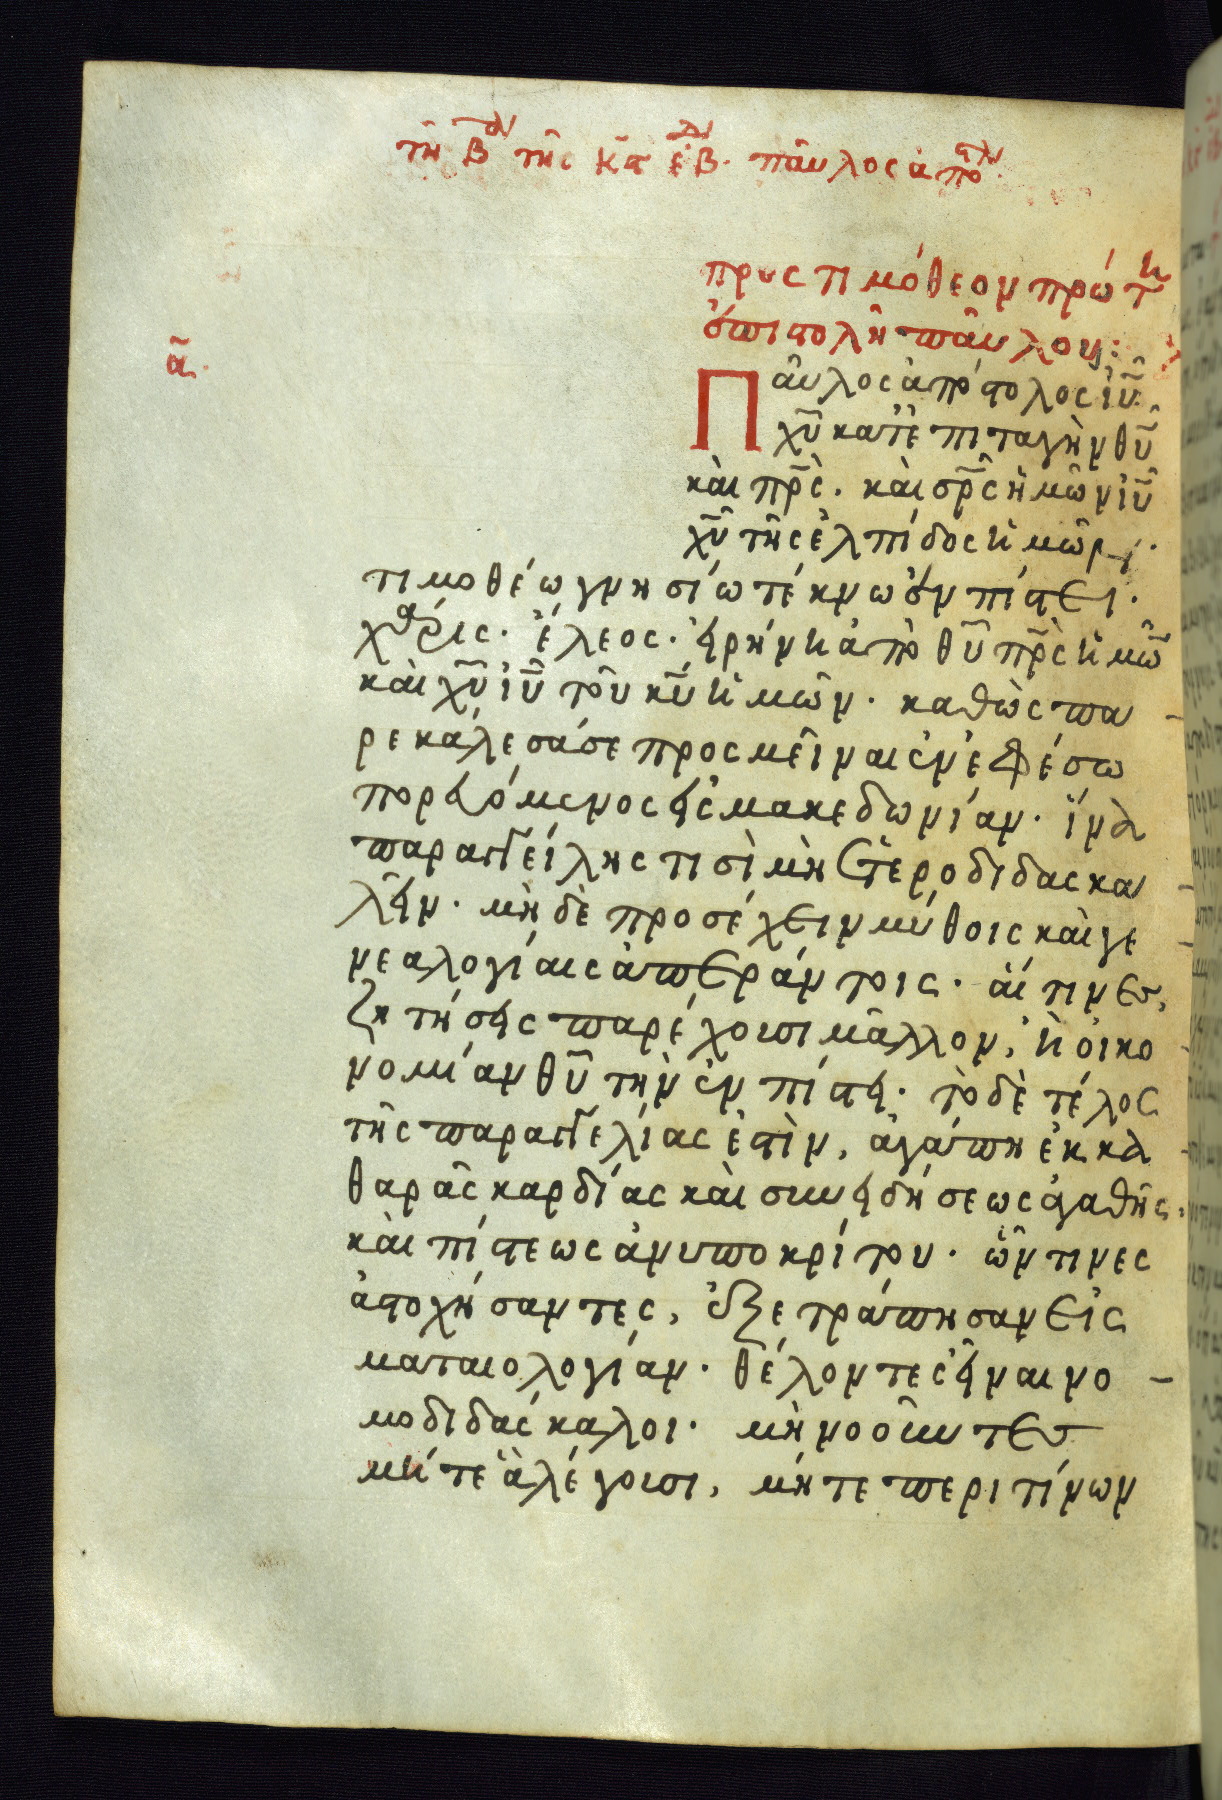 τῆ β τῆς κ̅ς ἑβδ. παῦλος ἀπο
προς τιμόθεον πρώτη
ἐπιστολὴ παύλου:
α̅.
Παῦλος ἀπόστολος ἰ̅υ̅
χ̅υ̅ κατ' ἐπιταγὴν θ̅υ̅
καὶ π̅ρ̅ς̅. καὶ σ̅ρ̅ς̅ ἡμῶν ἰ̅υ̅
χ̅υ̅ τῆς ἐλπίδος ἡμῶν·
τιμοθέω γνησίω τέκνω ἐν πίστει·
χάρις. ἔλεος. εἰρήνη ἀπὸ θ̅υ̅ π̅ρ̅ς̅ ἡμῶ̅
καὶ χ̅υ̅ ἰ̅υ̅ τοῦ κ̅υ̅ ἡμῶν. καθὼς πα
ρεκάλεσά σε προσμεῖναι ἐν ἐφέσω
πορευόμενος εἰς μακεδωνίαν. ἵνα
παραγγείλης τισὶ μὴ ἑτεροδιδασκα
λεῖν. μὴ δὲ προσέχειν μύθοις καὶ γε
νεαλογίαις ἀπεράντοις. αἵ τινες,
ζητήσεις παρέχουσι μᾶλλον, ἢ οἰκο
νομίαν θ̅υ̅ τὴν ἐν πίστει. τὸ δὲ τέλος
τῆς παραγγελίας ἐστὶν, ἀγάπη ἐκ κα
θαρᾶς καρδίας καὶ συνειδήσεως ἀγαθῆς.
καὶ πίστεως ἀνυποκρίτου. ὧν τινες
ἀστοχήσαντες, ἐξετράπησαν εἰς
ματαιολογίαν. θέλοντες εἶναι νο
μοδιδάσκαλοι. μὴ νοοῦντες
μήτε ἃ λέγουσι, μήτε περὶ τίνων